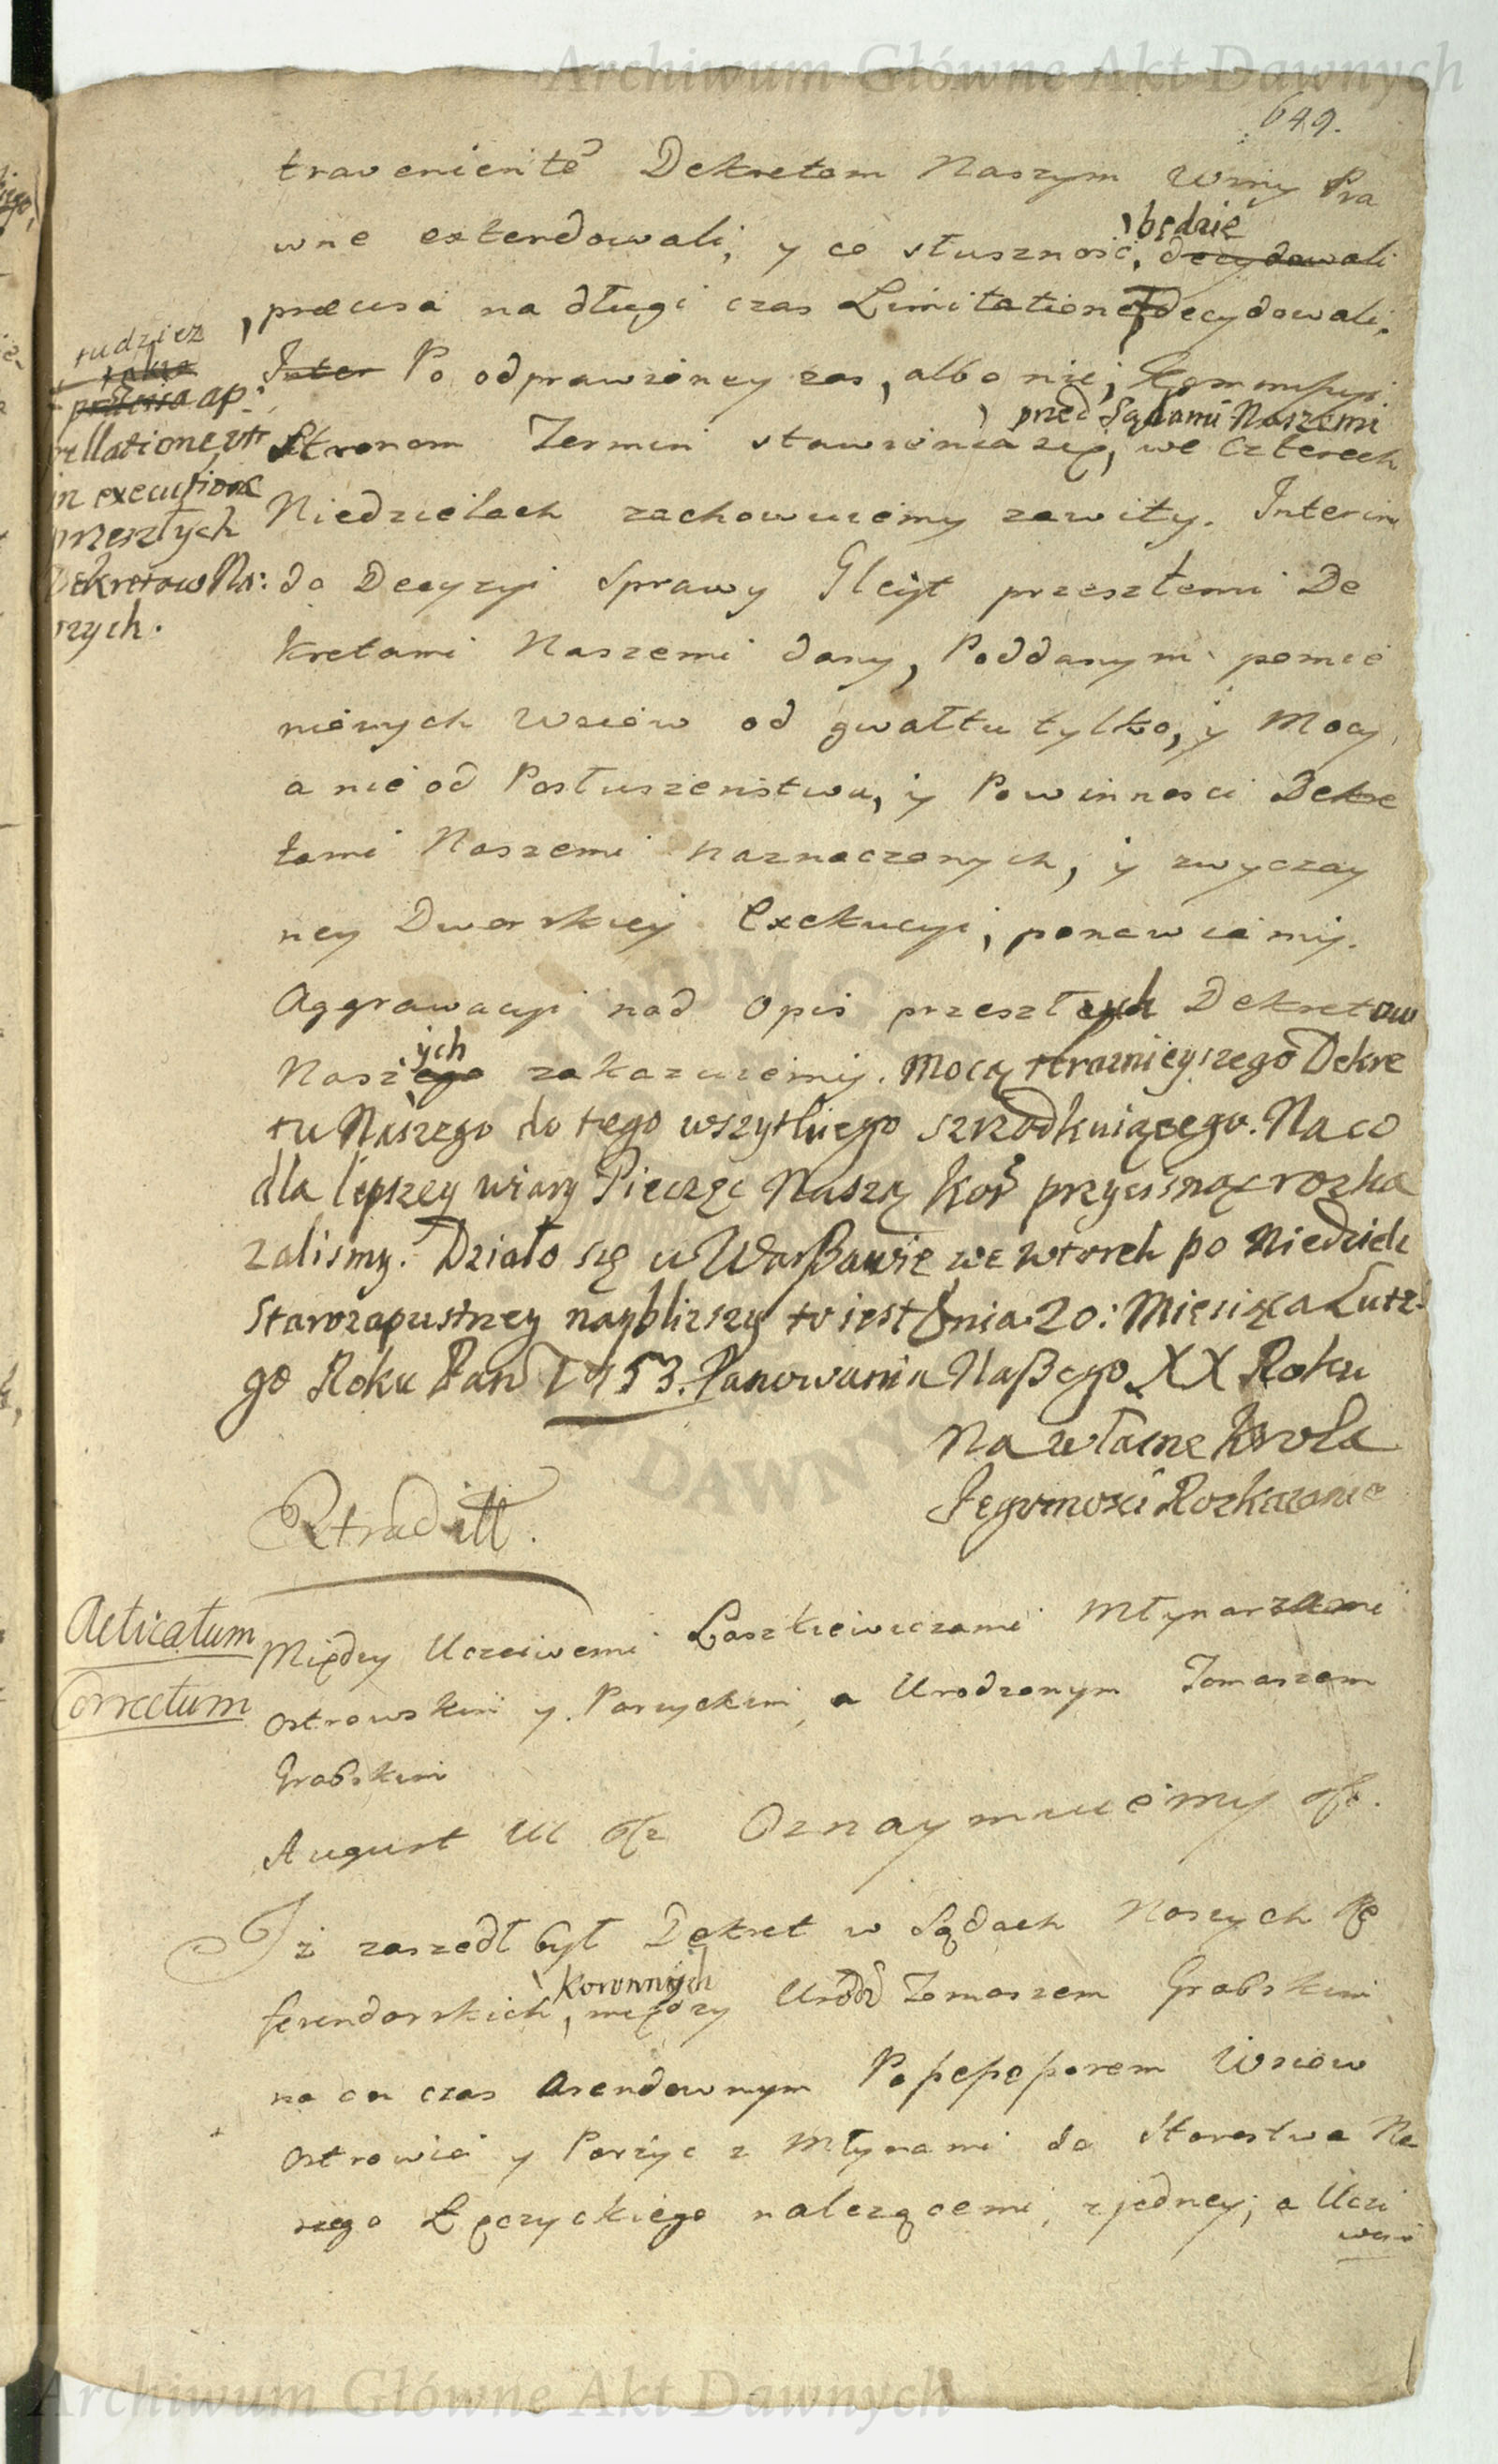 Archiwum Główne Akt Dawnych
649.
travenientẽ Dekretom Naszym Winy Pra
wne extendowali, y co słuszność, będzie decydowali
præcisa na długi czas Limitatione, decydowali.
Inter Po odprawioney zas, albo nie, Kommissyi.
Stronom Termin stawienia się, przed Sądami Naszemi we czterech
Niedzielach zachowuiemy zawity. Interim
do Decyzyi Sprawy Gleyt przeszłemi De
kretami Naszemi dany, Poddanym pomie
nionych Wsiow od gwałtu tylko, y Mocy,
a nie od Posłuszeństwa, y Powinnosci Dekre
tami Naszemi naznaczonych, y zwyczay
ney Dworskiey Exekucyi, ponawiamy.
Aggrawacyi nad Opis przeszłych Dekretow
Naszego ych zakazuiemy. Mocą teraznieyszego Dekre
tu Naszego do tego wszytkiego szrodkuiącego. Na co
dla lepszey wiary Pieczęc Naszą Kor przycisnąc rozka
zalismy. Działo się w Warszawie we wtorek po Niedzieli
Starozapustney naybliższy to iest Dnia 20: Miesiąca Lute
go Roku Pan 1753. Panowania Naszego XX Roku
Na własne Krola
Jegomosci Rozkazanie
tudziez
także
præcisa ap:
pellatione, utr
in executione
przeszłych
Dekretow Na:
szych.
Extradit.
Acticatum
Correctum
Między Uczciwemi Laszkiewiczami Młynarzami
Ostrowskim y Parzyckim, a Urodzonym Tomaszem
Grabskim
August III etc Oznaymuiemy etc.
Iż zaszedł był Dekret w Sądach Naszych Re
ferendarskich, Koronnych między Urodz Tomaszem Grabskim
na on czas Arendownym Possessorem Wsiow
Ostrowia y Parzyc z Młynami do Starostwa Na
szego Łęczyckiego nalezącemi, z jedney; a Uczci
wemi
Archiwum Główne Akt Dawnych